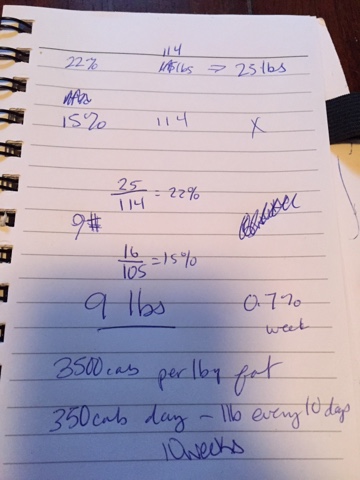 114
22% lbs ⇒ 25 lbs
15% 114 X
25/114 = 22%
9#
16/105 = 15%
9 lbs 0.7%
week
3500 cals per lb of fat
350 cals day - 1lb every 10 days
10 weeks